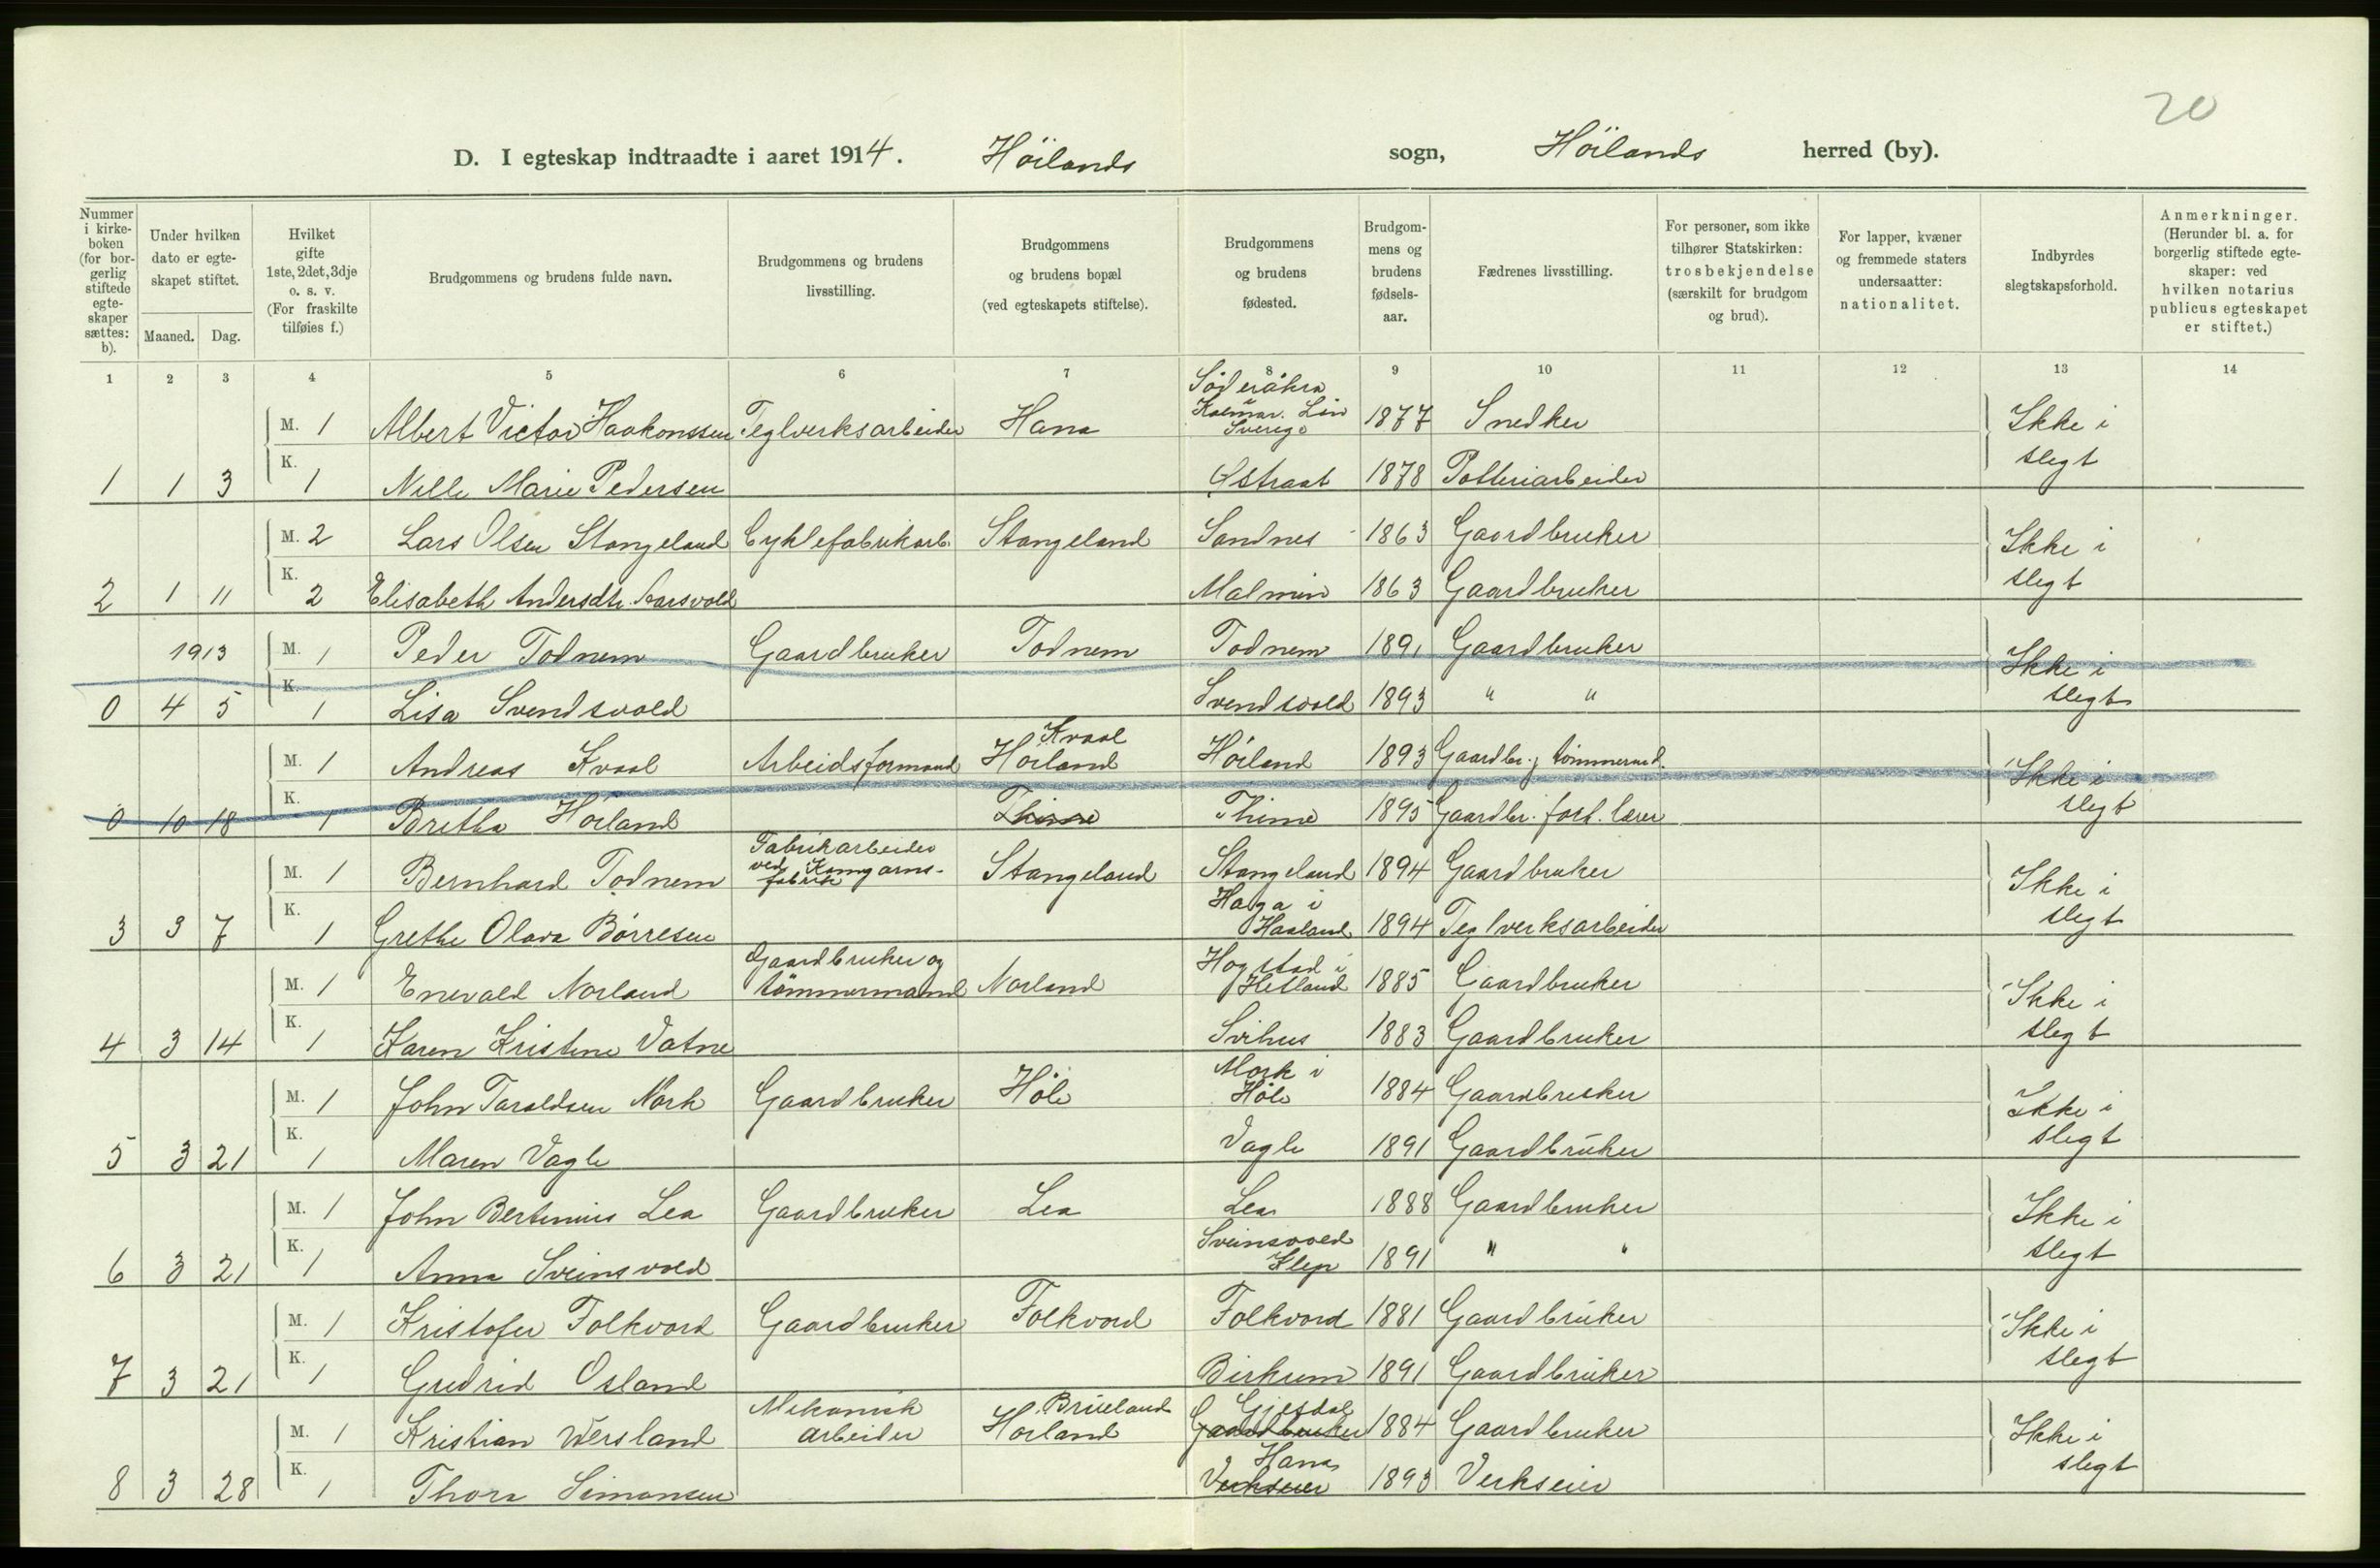 20
D. I egteskap indtraadte i aaret 1914. Höilands sogn, Höilands herred (by).
Nummer i kirke-boken (for bor-gerlig stiftede egte-skaper sættes: b).
Under hvilken dato er egte-skapet stiftet.
Maaned. Dag.
Hvilket gifte 1ste, 2det, 3dje o. s. v. (For fraskilte tilføies f.)
Brudgommens og brudens fulde navn.
Brudgommens og brudens livsstilling.
Brudgommens og brudens bopæl (ved egteskapets stiftelse).
Brudgommens og brudens fødested.
Brudgom-mens og brudens fødsels-aar.
Fædrenes livsstilling.
For personer, som ikke tilhører Statskirken: trosbekjendelse (særskilt for brudgom og brud).
For lapper, kvæner og fremmede staters undersaatter: nationalitet.
Indbyrdes slegtskapsforhold.
Anmerkninger. (Herunder bl. a. for borgerlig stiftede egte-skaper: ved hvilken notarius publicus egteskapet er stiftet.)
1 2 3 4 5 6 7 8 9 10 11 12 13 14
M. 1 Albert Victor Haakonssen Teglverksarbeider Hana Söderåkra i Kalmar Län Sverige 1877 Snedker Ikke i slegt
1 1 3 K. 1 Nille Marie Pedersen Østraat 1878 Potteriarbeider
M. 2 Lars Olsen Stangeland Cyklefabrikarb. Stangeland Sandnes 1863 Gaardbruker Ikke i slegt
2 1 11 K. 2 Elisabeth Andersdtr. Aarsvold Malmin 1863 Gaardbruker
1913 M. 1 Peder Todnem Gaardbruker Todnem Todnem 1891 Gaardbruker Ikke i slegt
0 4 5 K. 1 Lisa Svendsvold Svendsvold 1893 " "
M. 1 Andreas Kvaal Arbeidsformand Kvaal Höiland Höiland 1893 Gaardbr. j tömmermd. Ikke i slegt
0 10 18 K. 1 Bretha Höiland Thime Thime 1895 Gaardbr. fort. lærer
M. 1 Bernhard Todnem Fabrikarbeider ved Kamgarns-fabrik Stangeland Stangeland 1894 Gaardbruker Ikke i slegt
3 3 7 K. 1 Grethe Olava Börresen Haga i Haaland 1894 Teglverksarbeider
M. 1 Enevald Norland Gaardbruker og tömmermand Norland Hogstad i Hetland 1885 Gaardbruker Ikke i slegt
4 3 14 K. 1 Karen Kristine Vatne Svihus 1883 Gaardbruker
M. 1 John Taraldsen Mork Gaardbruker Höle Mork i Höle 1884 Gaardbruker Ikke i slegt
5 3 21 K. 1 Maren Vagle Vagle 1891 Gaardbruker
M. 1 John Bertinius Lea Gaardbruker Lea Lea 1888 Gaardbruker Ikke i slegt
6 3 21 K. 1 Anna Sveinsvold Sveinsvold Klep 1891 " "
M. 1 Kristofer Folkvord Gaardbruker Folkvord Folkvord 1881 Gaardbruker Ikke i slegt
7 3 21 K. 1 Gudrid Osland Birkrem 1891 Gaardbruker
M. 1 Kristian Wersland Mekanisk arbeider Brueland Höiland Gjesdal Gaardbruker 1884 Gaardbruker Ikke i slegt
8 3 28 K. 1 Thora Simonsen Hana Verkseier 1893 Verkseier